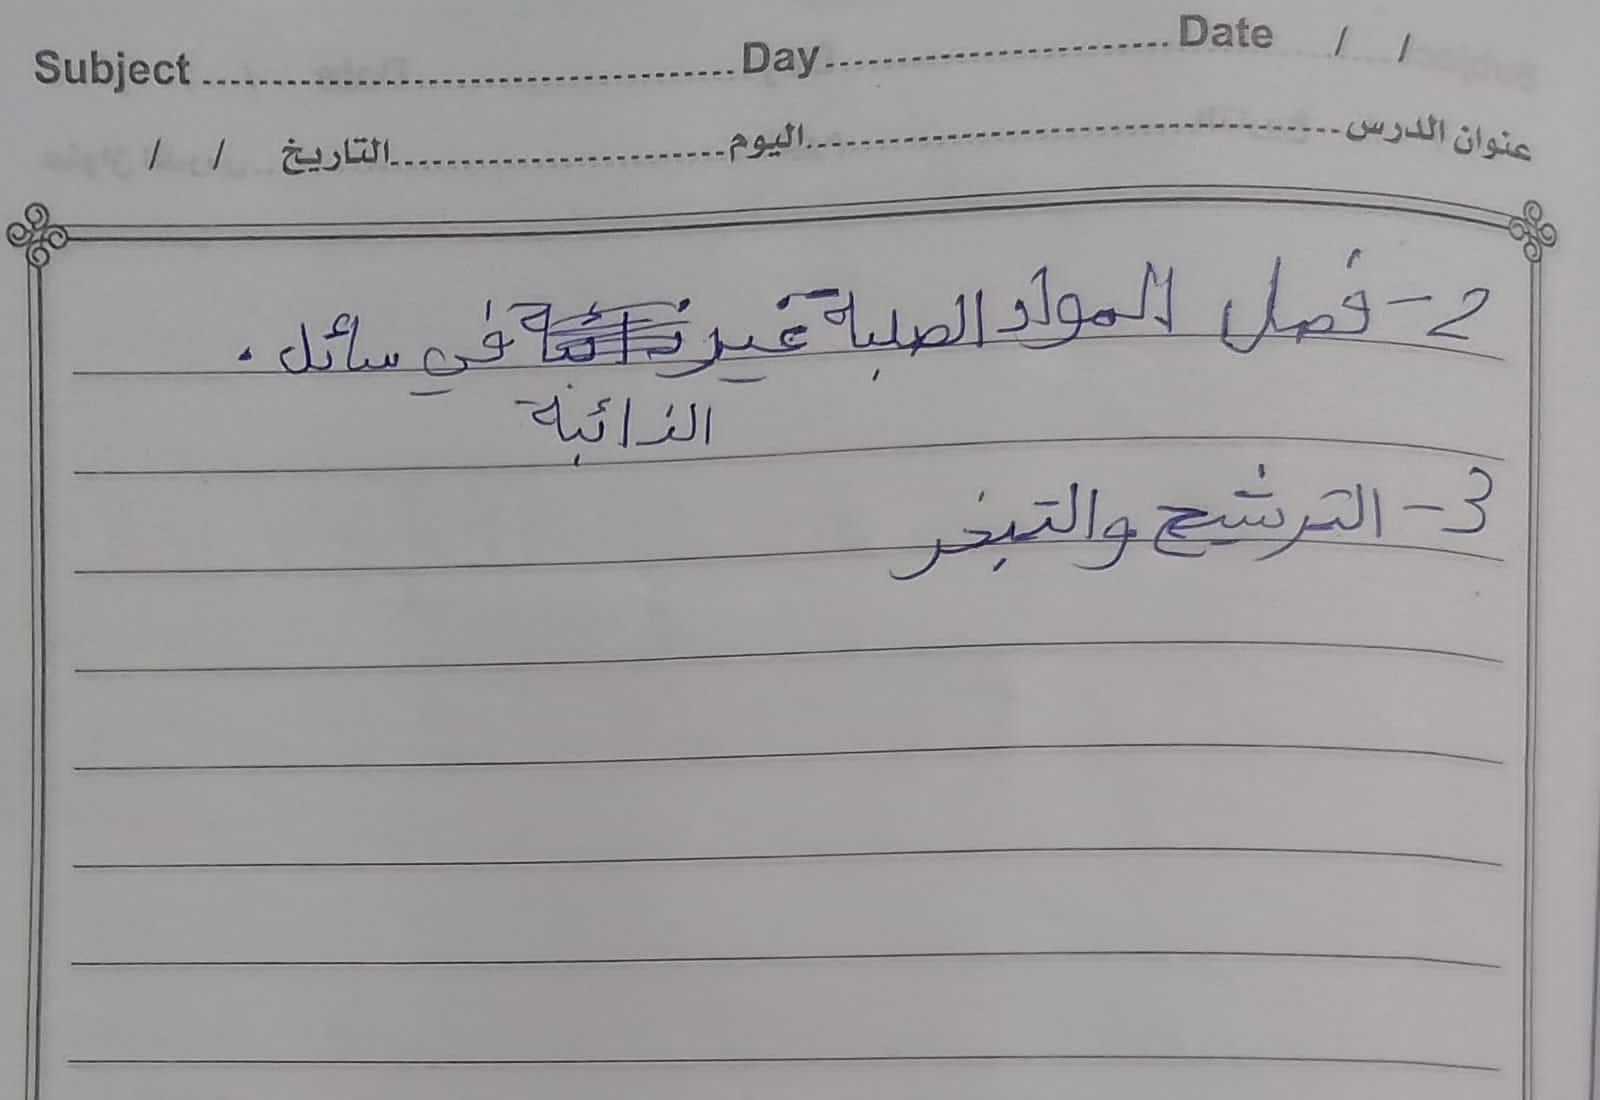 Subject ........ Day ........ Date / /
عنوان الدرس ........ اليوم ........ التاريخ / /
2- فصل المواد الصلبة غير في سائل .
الذائبة
3- الترشيح والتبخر